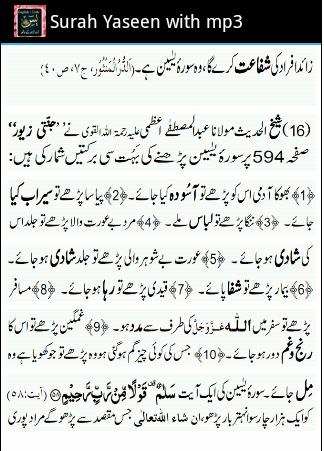 Surah Yaseen with mp3
زائد افراد کی شفاعت کرے گا، وہ سورۂ یٰسین ہے۔ (اَلدُّرُّ الْمَنْثُوْر، ج۷، ص۴۰)
(16) شیخ الحدیث مولانا عبد المصطفٰے اعظمی علیہ رحمۃ اللہ القوی نے ’’جنّتی زیور‘‘
صفحہ 594 پر سورۂ یٰسین پڑھنے کی بہُت سی برکتیں شمار کی ہیں:
﴿1﴾ بھوکا آدمی اس کو پڑھے تو آسودہ کیا جائے۔ ﴿2﴾ پیاسا پڑھے تو سیراب کیا
جائے۔ ﴿3﴾ ننگا پڑھے تو لباس ملے۔ ﴿4﴾ مرد بے عورت والا پڑھے تو جلد اس
کی شادی ہو جائے۔ ﴿5﴾ عورت بے شوہر والی پڑھے تو جلد شادی ہو جائے۔
﴿6﴾ بیمار پڑھے تو شفا پائے۔ ﴿7﴾ قیدی پڑھے تو رہا ہو جائے۔ ﴿8﴾ مسافر
پڑھے تو سفر میں اللہ عَزَّوَجَلَّ کی طرف سے مدد ہو۔ ﴿9﴾ غمگین پڑھے تو اس کا
رنج و غم دور ہو جائے۔ ﴿10﴾ جس کی کوئی چیز گم ہو گئی ہو وہ پڑھے تو جو کھویا ہے وہ
مِل جائے۔ سورۂ یٰسین کی ایک آیت سَلٰمٌ قَوْلًا مِّنْ رَّبٍّ رَّحِیْمٍ (آیت:۵۸)
کو ایک ہزار چار سو انہتر بار پڑھو، ان شاء اللہ تعالٰی جس مقصد سے پڑھو گے مراد پوری